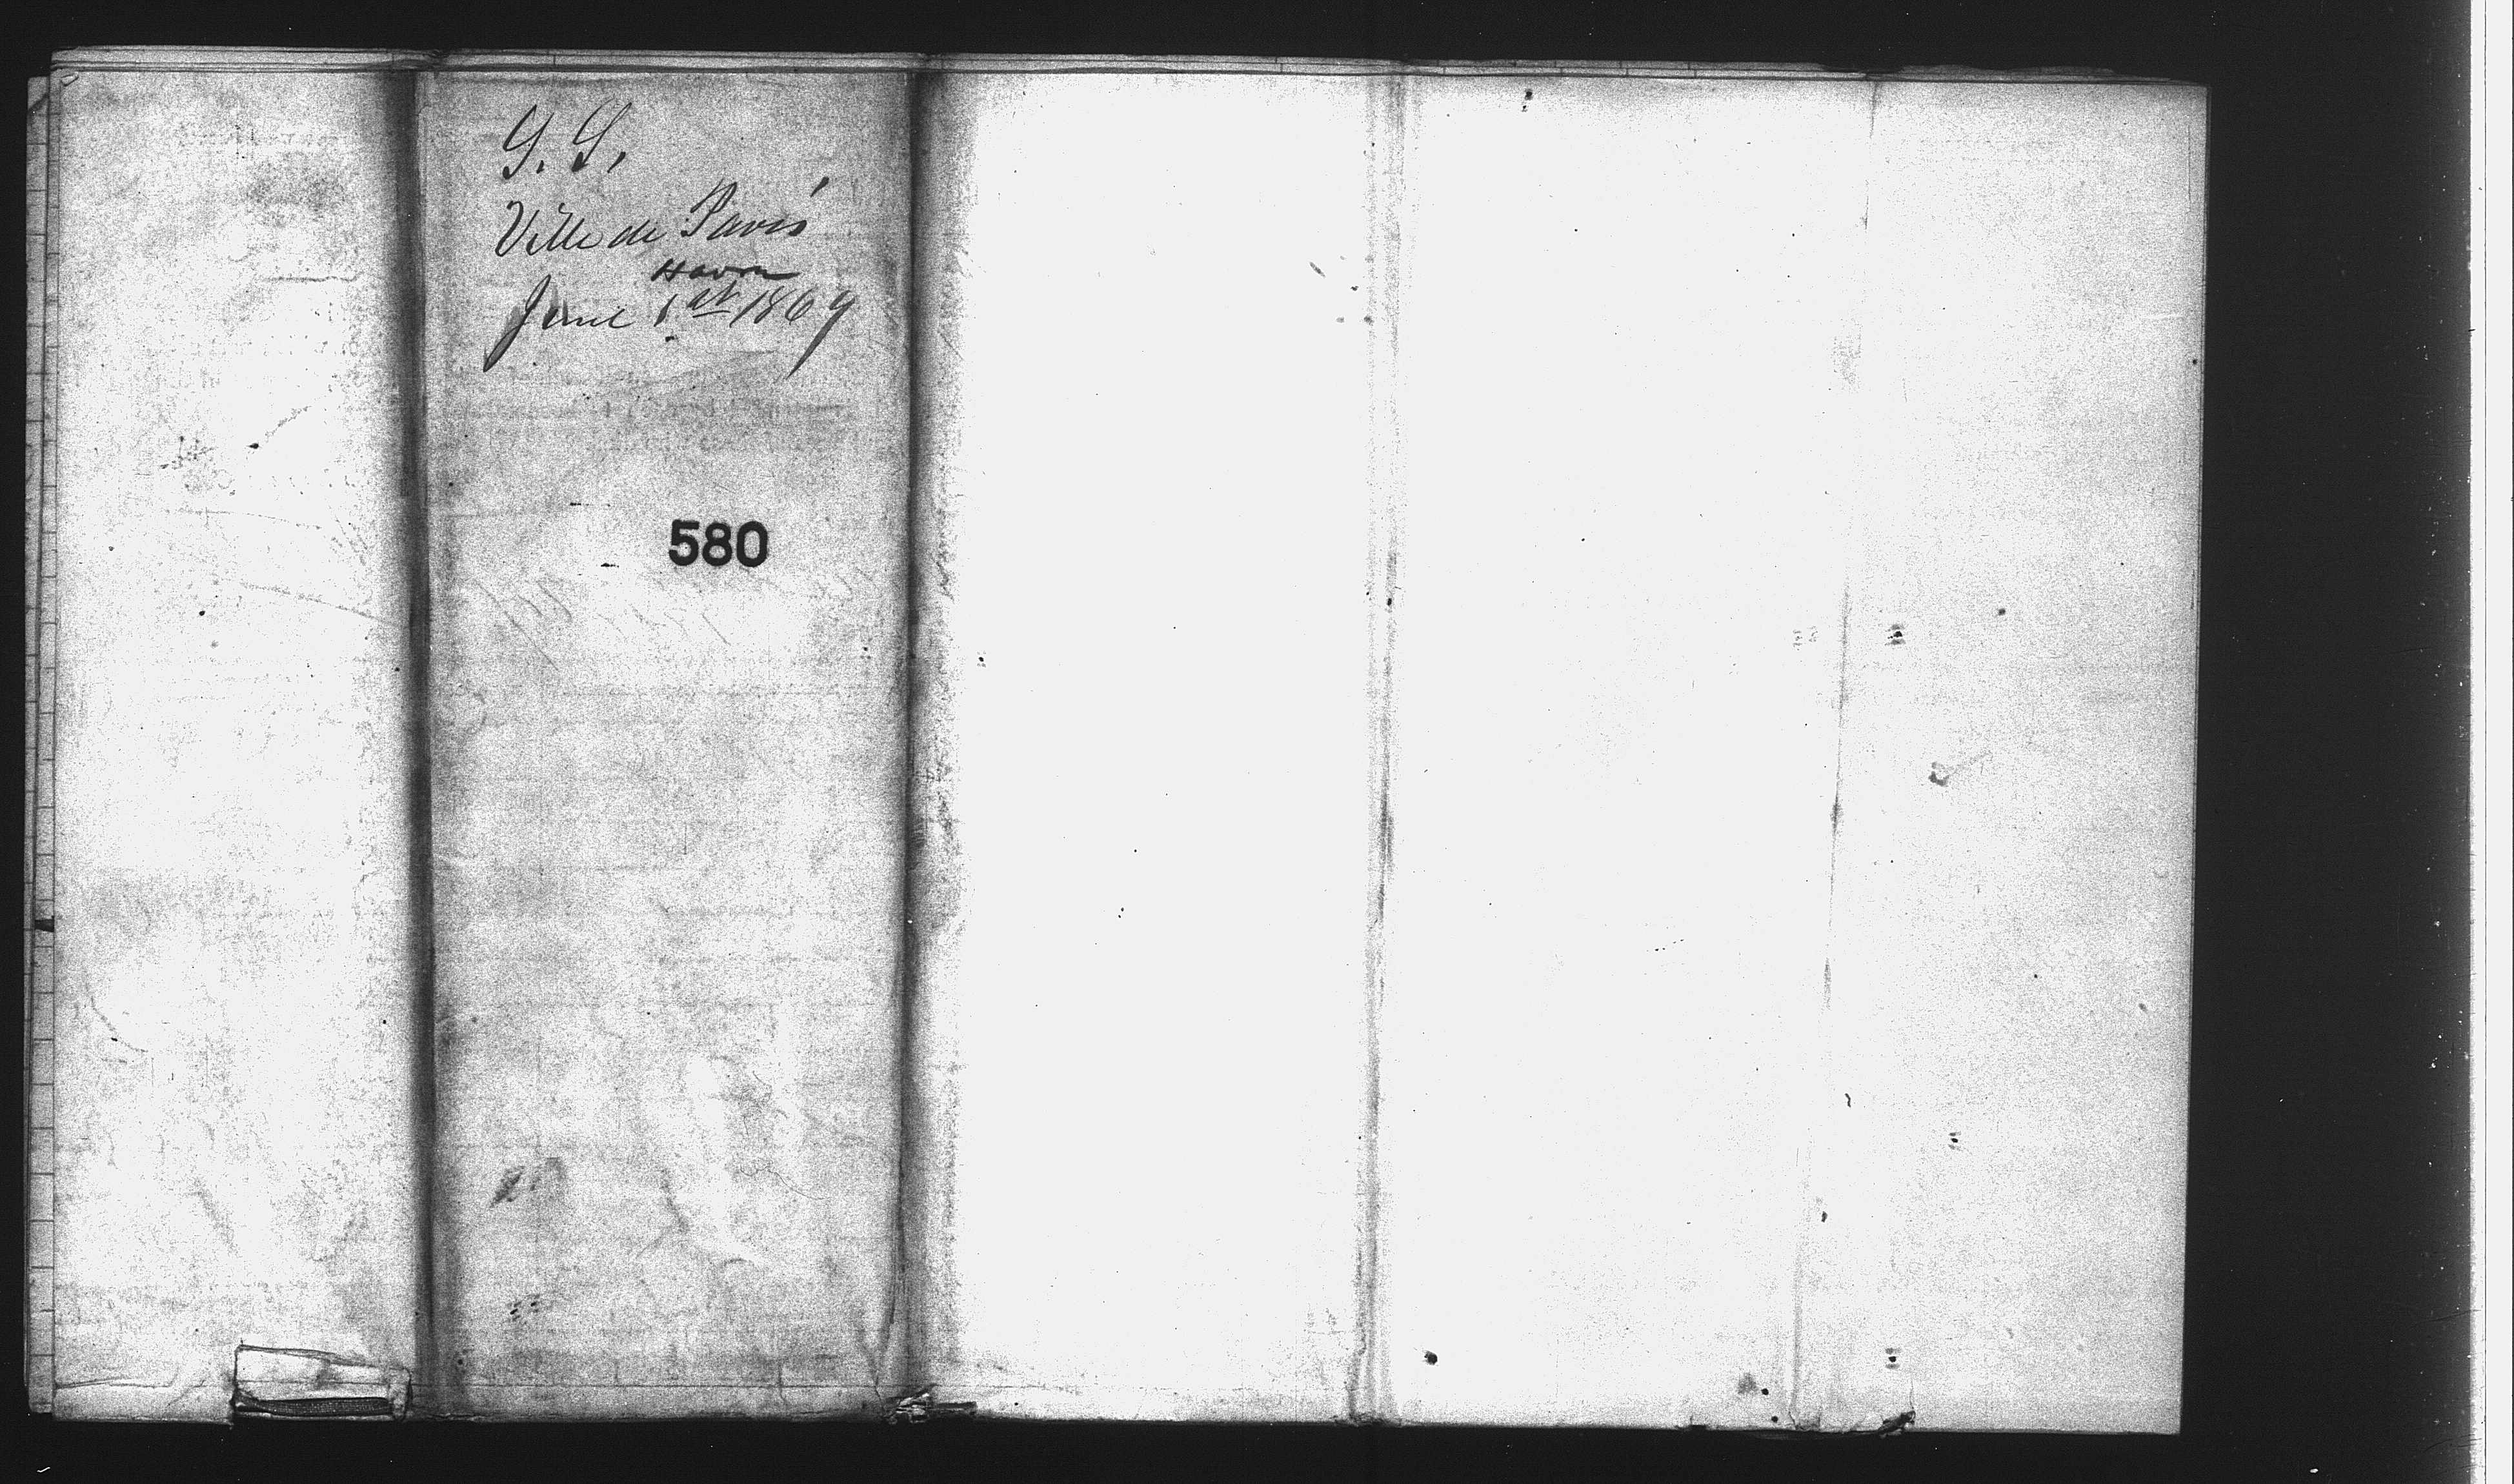 S. S.
Ville de Paris
Havre
June 1st 1869
580